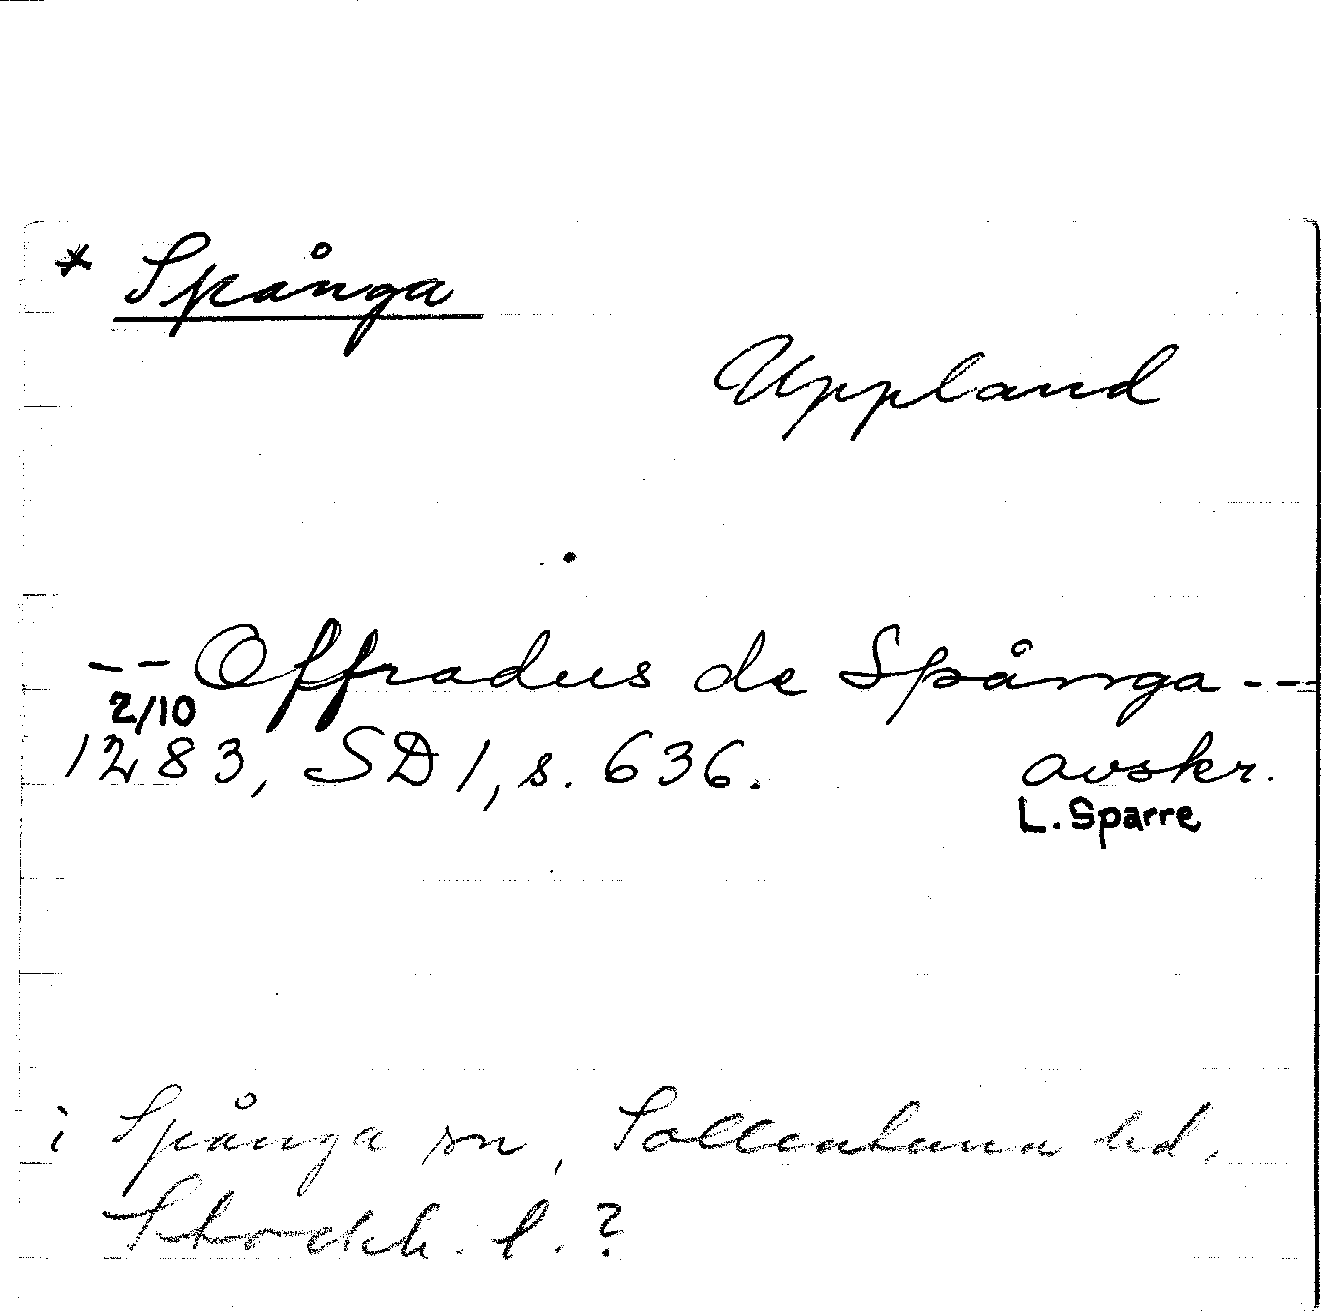 * Spånga
Uppland
-- Offradus de Spånga ---
2/10
1283, SD 1, s. 636. avskr.
L. Sparre
i Spånga sn, Sollentuna hd,
Stockh. l. ?